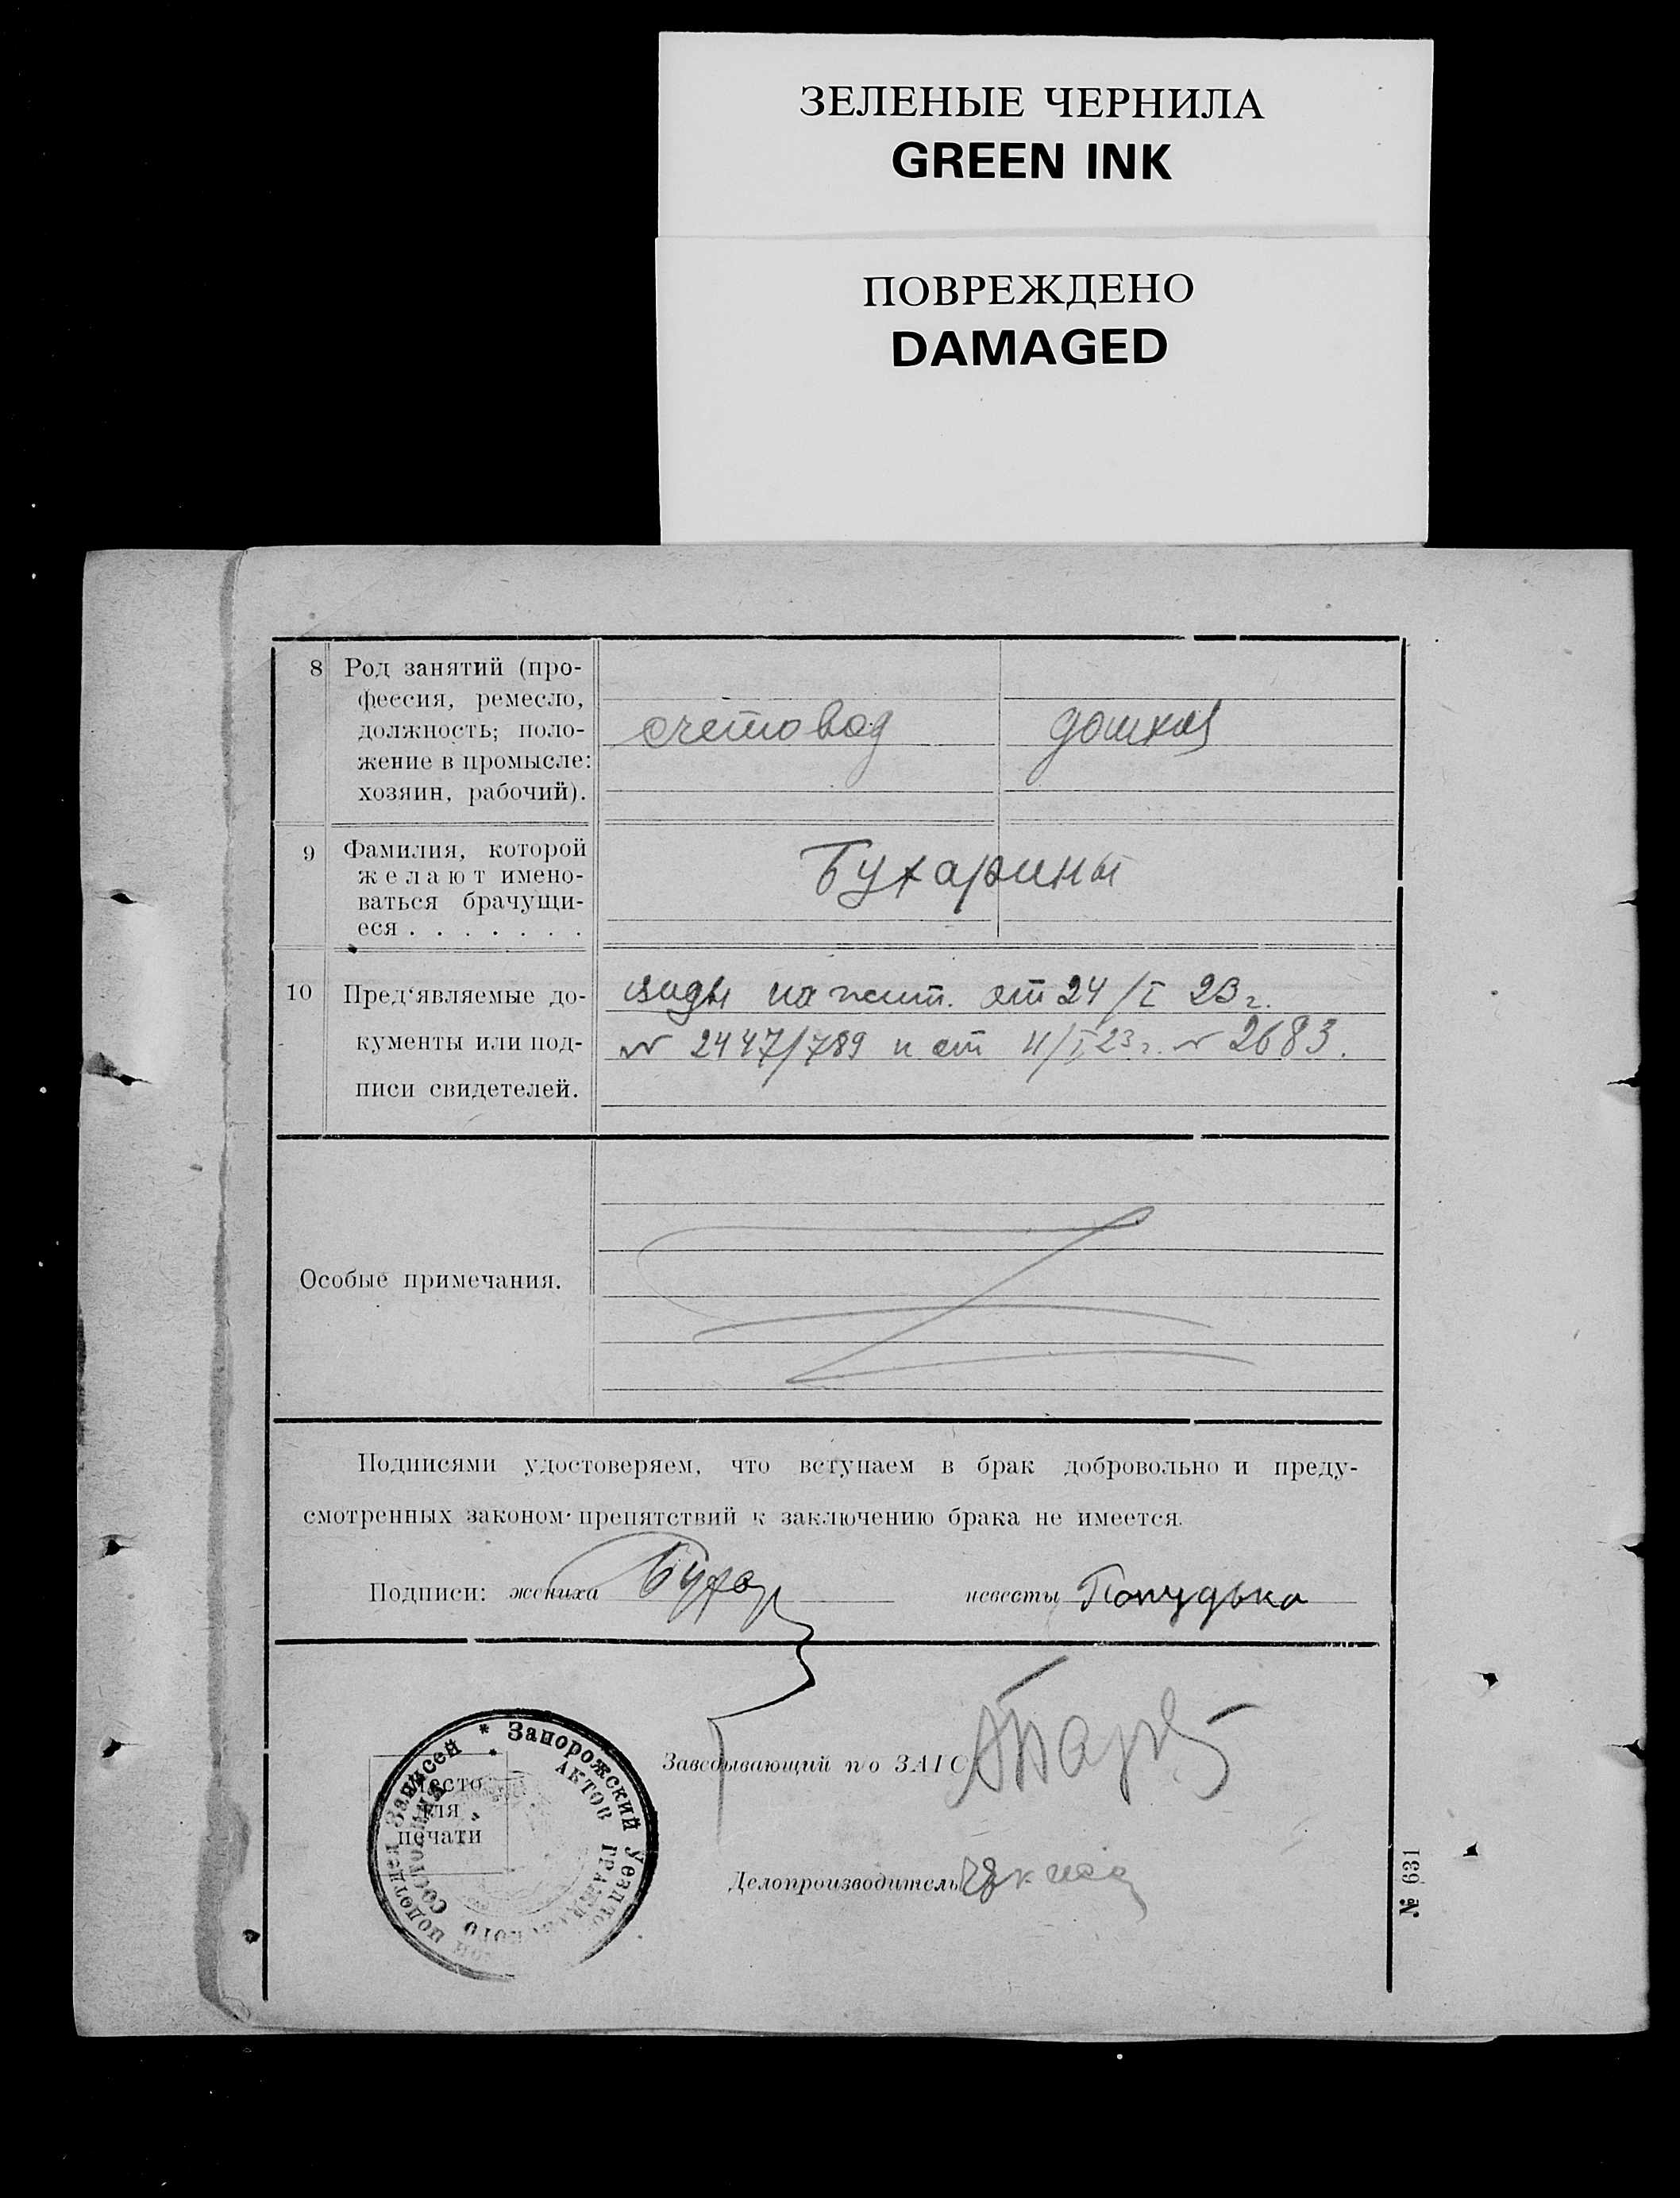 ЗЕЛЕНЫЕ ЧЕРНИЛА
GREEN INK
ПОВРЕЖДЕНО
DAMAGED
8 Род занятий (про-
фессия, ремесло,
должность; поло-
жение в промысле:
хозяин, рабочий).
счетовод
9 Фамилия, которой
желают имено-
ваться брачущи-
еся . . . . . . .
Бухарины
10 Пред'являемые до-
кументы или под-
писи свидетелей.
виды на жит. от 24/I 23 г.
№ 2447/789 и от 4/I 23 г. № 2683.
Особые примечания.
Подписями удостоверяем, что вступаем в брак добровольно и преду-
смотренных законом препятствий к заключению брака не имеется.
Подписи: жениха Бухар невесты Попудько
Заведывающий п/о ЗАГС
Место
для
печати
Делопроизводитель
* Запорожский Уездно подотдел Записей
АКТОВ ГРАЖДАНСКОГО СОСТОЯНИЯ
№ 631